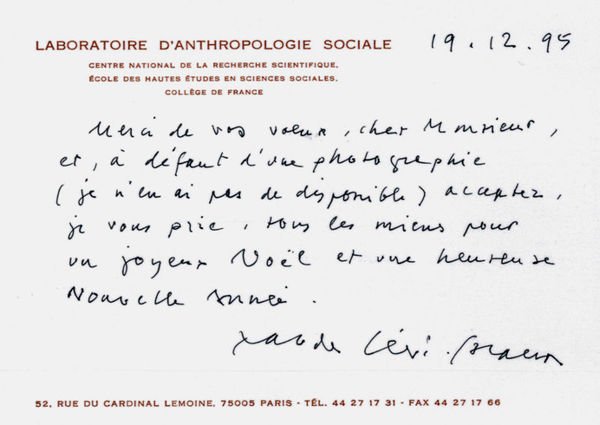 LABORATOIRE D'ANTHROPOLOGIE SOCIALE
19.12.95
CENTRE NATIONAL DE LA RECHERCHE SCIENTIFIQUE.
ÉCOLE DES HAUTES ÉTUDES EN SCIENCES SOCIALES.
COLLÈGE DE FRANCE
Merci de vos voeux, cher Monsieur,
et, à défaut d'une photographie
(je n'en ai pas de disponible) acceptez,
je vous prie, tous les miens pour
un joyeux Noël et une heureuse
Nouvelle Année.
Claude Lévi-Strauss
52, RUE DU CARDINAL LEMOINE, 75005 PARIS - TÉL. 44 27 17 31 - FAX 44 27 17 66